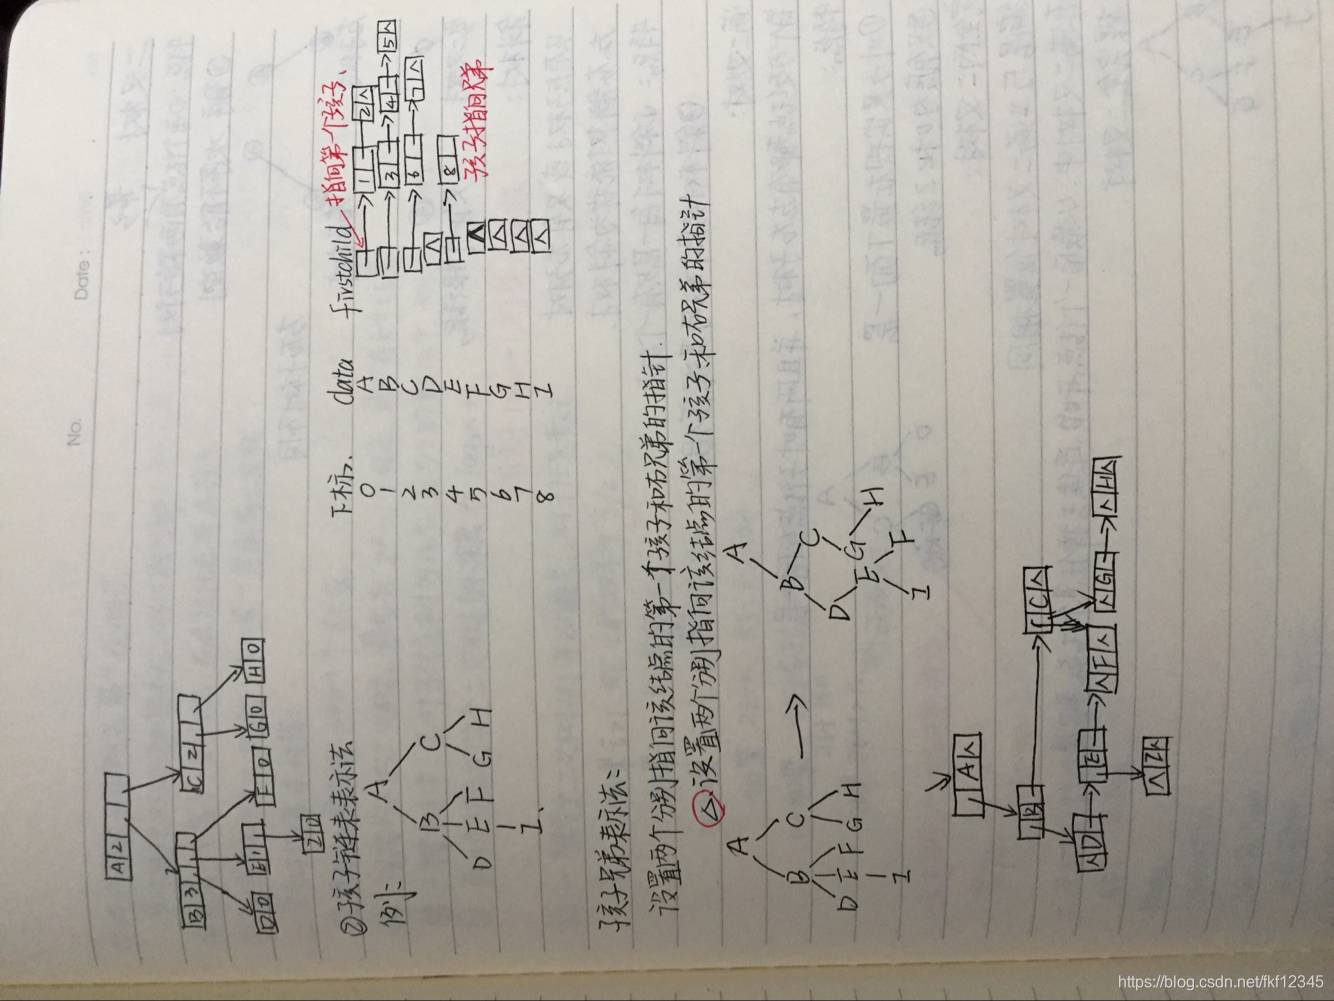 No.
Date:
A 2
B 3
C 2
D 0
E 1
F 0
G 0
H 0
I 0
②孩子链表表示法
例:
A
B C
D E F G H
I
下标 data firstchild 指向第一个孩子
0 A 1 2 ∧
1 B 3 4 5 ∧
2 C 6 7 ∧
3 D ∧
4 E 8
5 F ∧
6 G ∧
7 H ∧
8 I ∧
孩子指向兄弟
孩子兄弟表示法:
设置两个分别指向该结点的第一个孩子和右兄弟的指针.
△设置两个分别指向该结点的第一个孩子和右兄弟的指针
A
B C
D E F G H
I
→
A
B
D C
E G
I F H
A ∧
B
C ∧
∧ D
E
∧ F ∧
∧ G
∧ H ∧
∧ I ∧
https://blog.csdn.net/fkf12345